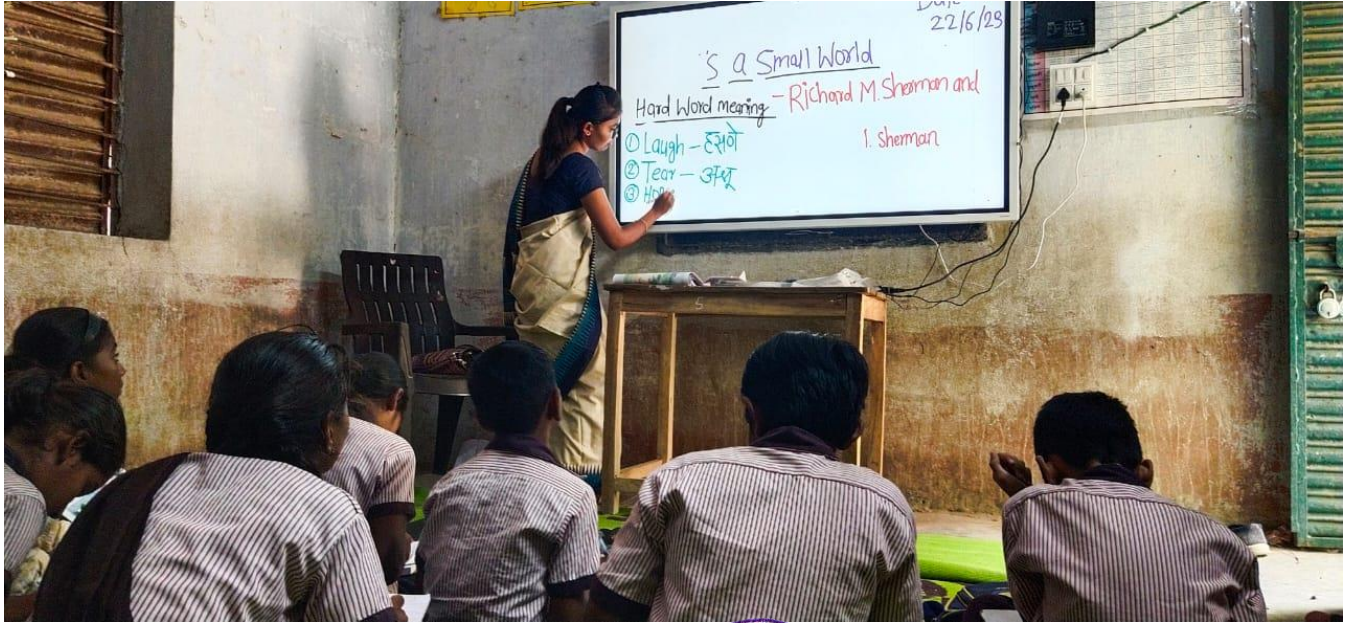 Date
22/6/23
's a Small World
Hard Word meaning - Richard M. Sherman and
① Laugh - हसणे
1. Sherman
② Tear - अश्रू
③ Hop